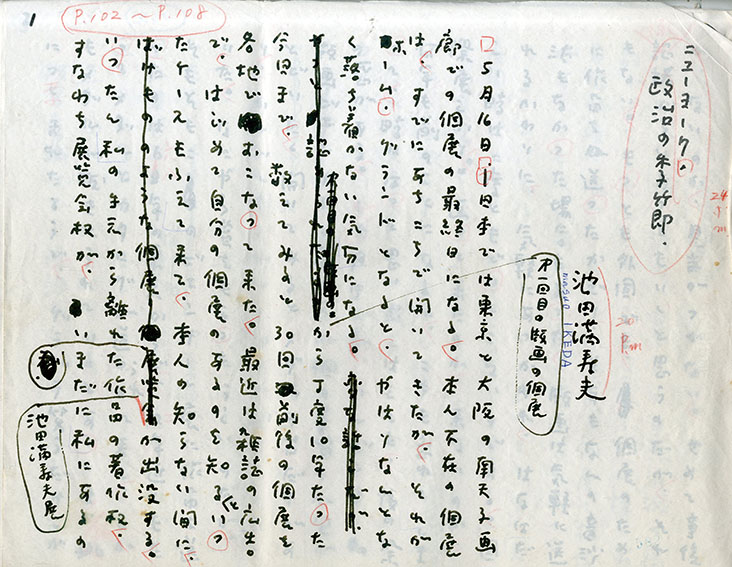 1
P.102～P.108
ニューヨーク・
政治の季節・
池田満寿夫
masuo IKEDA
5月16日、日本では東京と大阪の南天子画
廊での個展の最終日になる。本人不在の個展
は、すでにあちこちで開いてきたが、それが
ホーム・グラウンドとなると、やはりなんとな
く落ち着かない気分になる。
第一回目の版画の個展
から丁度10年たった
今日まで、数えてみると30回前後の個展を
各地でおこなって来た。最近は雑誌の広告
で、はじめて自分の個展のあるのを知るといっ
たケースもふえて来て、本人の知らない間に、
ばけもののような
池田満寿夫展
が出没する。
いったん私の手元から離れた作品の著作権、
すなわち展覧会権が、いまだに私にあるの